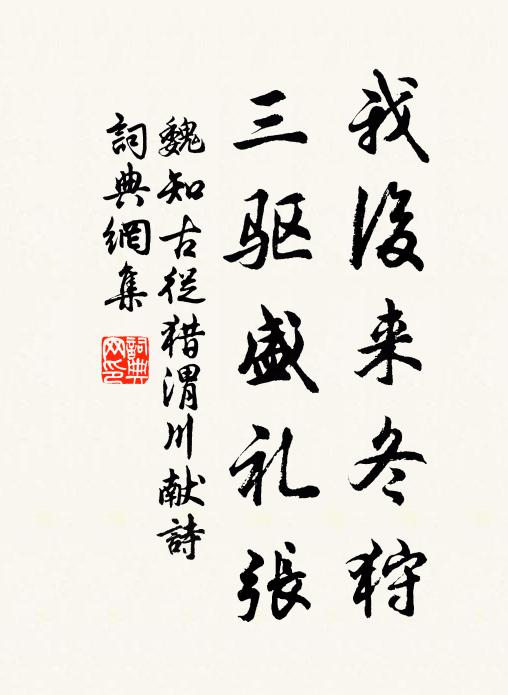 我後来冬狩
三驱盛礼張
魏知古從猎渭川献詩
詞典網集
詞典
网印